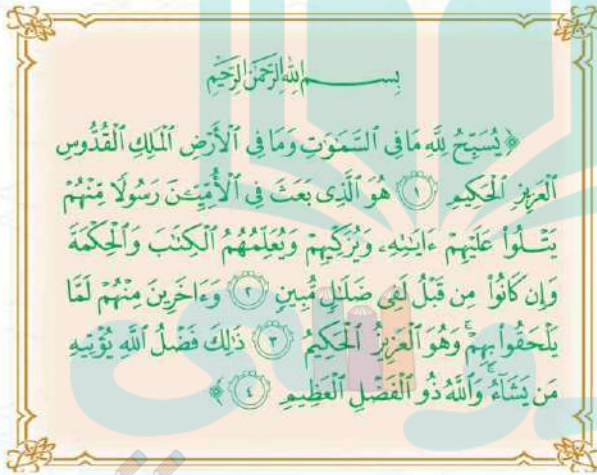 بِسْمِ اللَّهِ الرَّحْمَٰنِ الرَّحِيمِ
﴿ يُسَبِّحُ لِلَّهِ مَا فِي ٱلسَّمَٰوَٰتِ وَمَا فِي ٱلْأَرْضِ ٱلْمَلِكِ ٱلْقُدُّوسِ
ٱلْعَزِيزِ ٱلْحَكِيمِ ١ هُوَ ٱلَّذِى بَعَثَ فِى ٱلْأُمِّيِّـۧنَ رَسُولًا مِّنْهُمْ
يَتْلُوا۟ عَلَيْهِمْ ءَايَٰتِهِۦ وَيُزَكِّيهِمْ وَيُعَلِّمُهُمُ ٱلْكِتَٰبَ وَٱلْحِكْمَةَ
وَإِن كَانُوا۟ مِن قَبْلُ لَفِى ضَلَٰلٍ مُّبِينٍ ٢ وَءَاخَرِينَ مِنْهُمْ لَمَّا
يَلْحَقُوا۟ بِهِمْ ۚ وَهُوَ ٱلْعَزِيزُ ٱلْحَكِيمُ ٣ ذَٰلِكَ فَضْلُ ٱللَّهِ يُؤْتِيهِ
مَن يَشَآءُ ۚ وَٱللَّهُ ذُو ٱلْفَضْلِ ٱلْعَظِيمِ ٤ ﴾